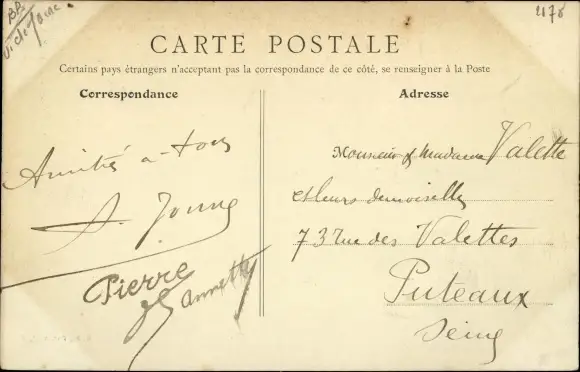 2178
CARTE POSTALE
Certains pays étrangers n'acceptant pas la correspondance de ce côté, se renseigner à la Poste
Correspondance
Amitiés a-tous
Pierre
Annette
Adresse
Monsieur & Madame Valette
et leurs demoiselles
73 rue des Valettes
Puteaux
Seine